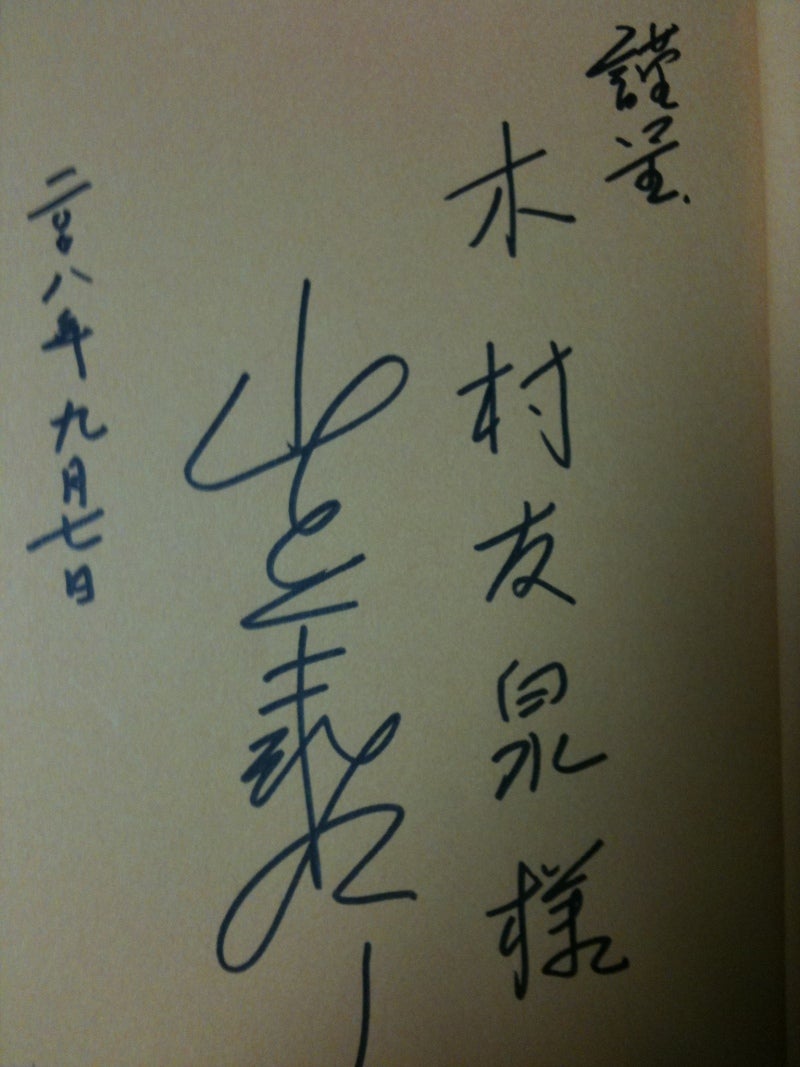 謹呈
木村友泉様
二〇〇八年九月七日